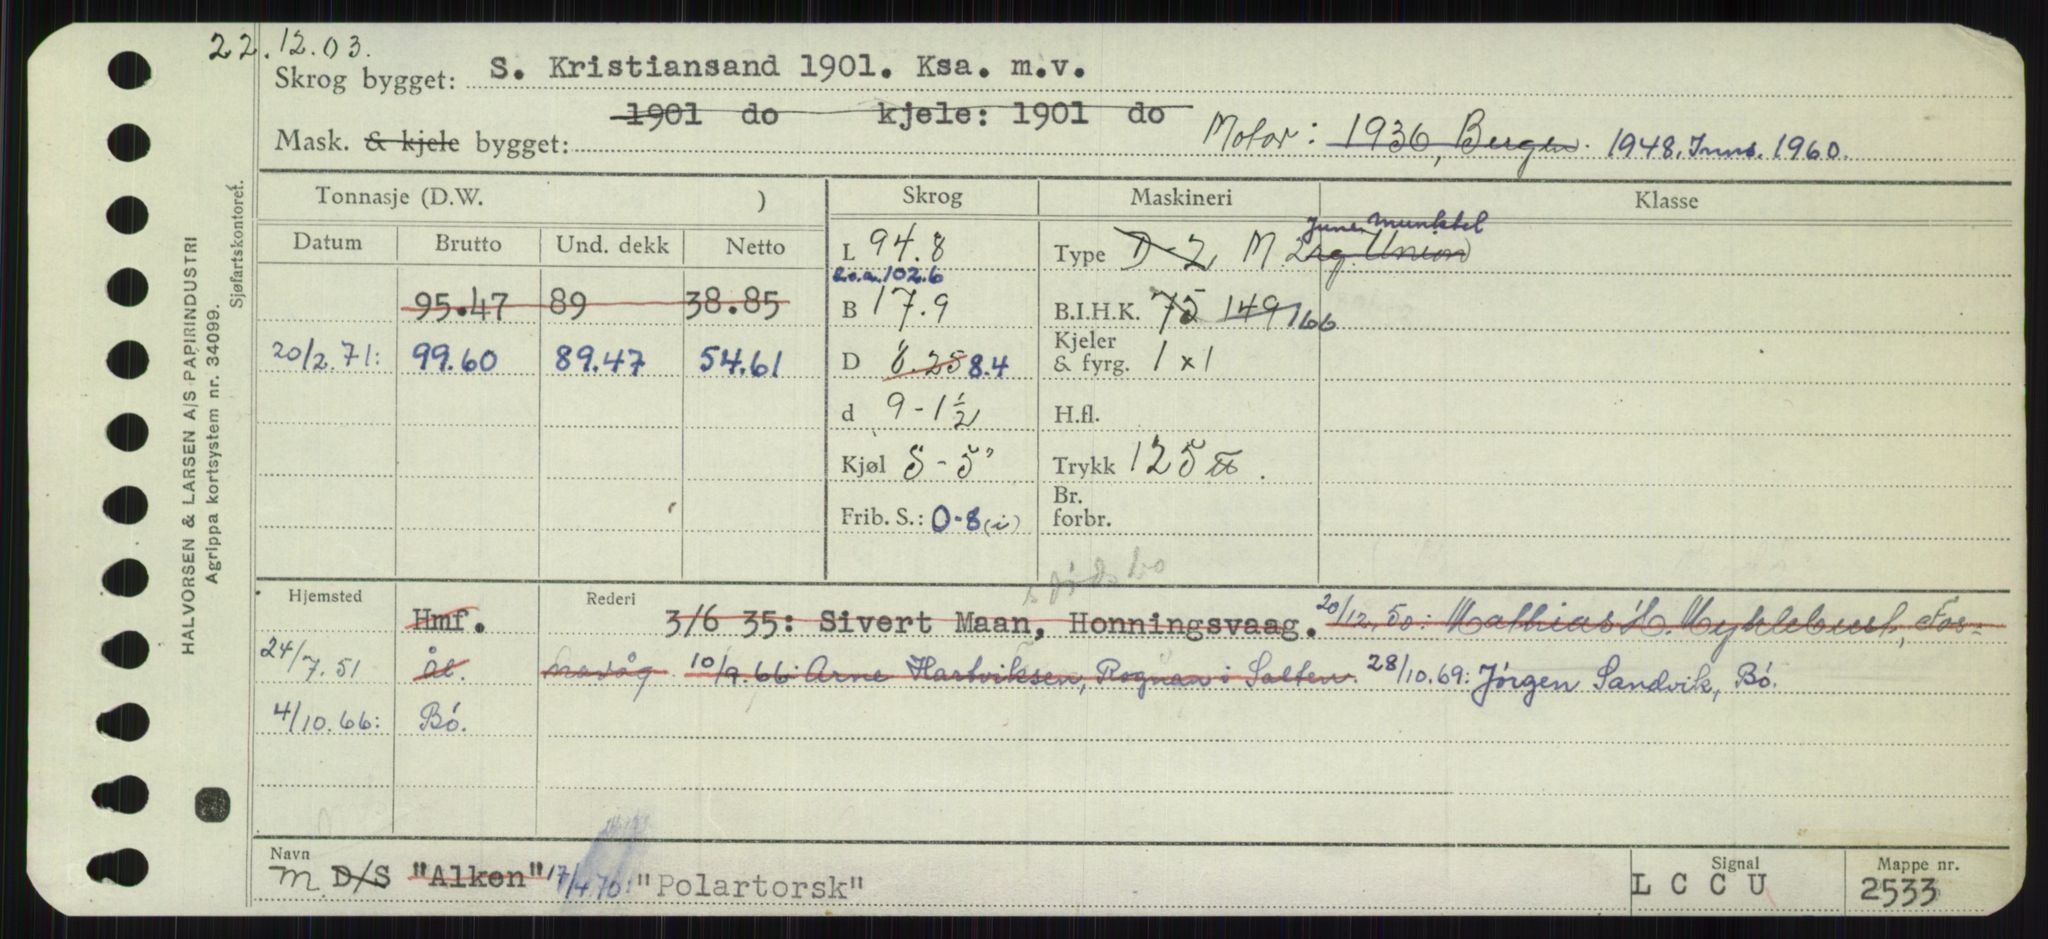 22.12.03.
Skrog bygget: S. Kristiansand 1901. Ksa. m.v.
1901 do kjele: 1901 do
Mask. & kjele bygget: Motor: 1936, Bergen. 1948, Inns. 1960.
Tonnasje (D.W. ) Skrog Maskineri Klasse
Datum Brutto Und. dekk Netto
L 94.8 Type D-2 M. June Munktel Union
l.o.a. 102.6
95.47 89 38.85 B 17.9 B.I.H.K. 75 149 166
20/2.71: 99.60 89.47 54.61 D 8.25 8.4 Kjeler & fyrg. 1 x 1
d 9-1½ H.fl.
Kjøl S-5" Trykk 125
Frib. S.: 0-8 (i) Br. forbr.
Hjemsted Rederi
Hmf. 3/6 35: Sivert Maan, Honningsvaag. 20/12.50: Mathias H. Myklebust, Fos-
24/7.51 Ål. navåg 10/9.66: Arne Hartviksen, Rognan i Salten. 28/10.69: Jörgen Sandvik, Bö.
4/10.66: Bö.
Navn Signal Mappe nr.
M. D/S "Alken" 17/4 70: "Polartorsk" L C C U 2533
HALVORSEN & LARSEN A/S PAPIRINDUSTRI
Agrippa kortsystem nr. 34099.
Sjøfartskontoret.